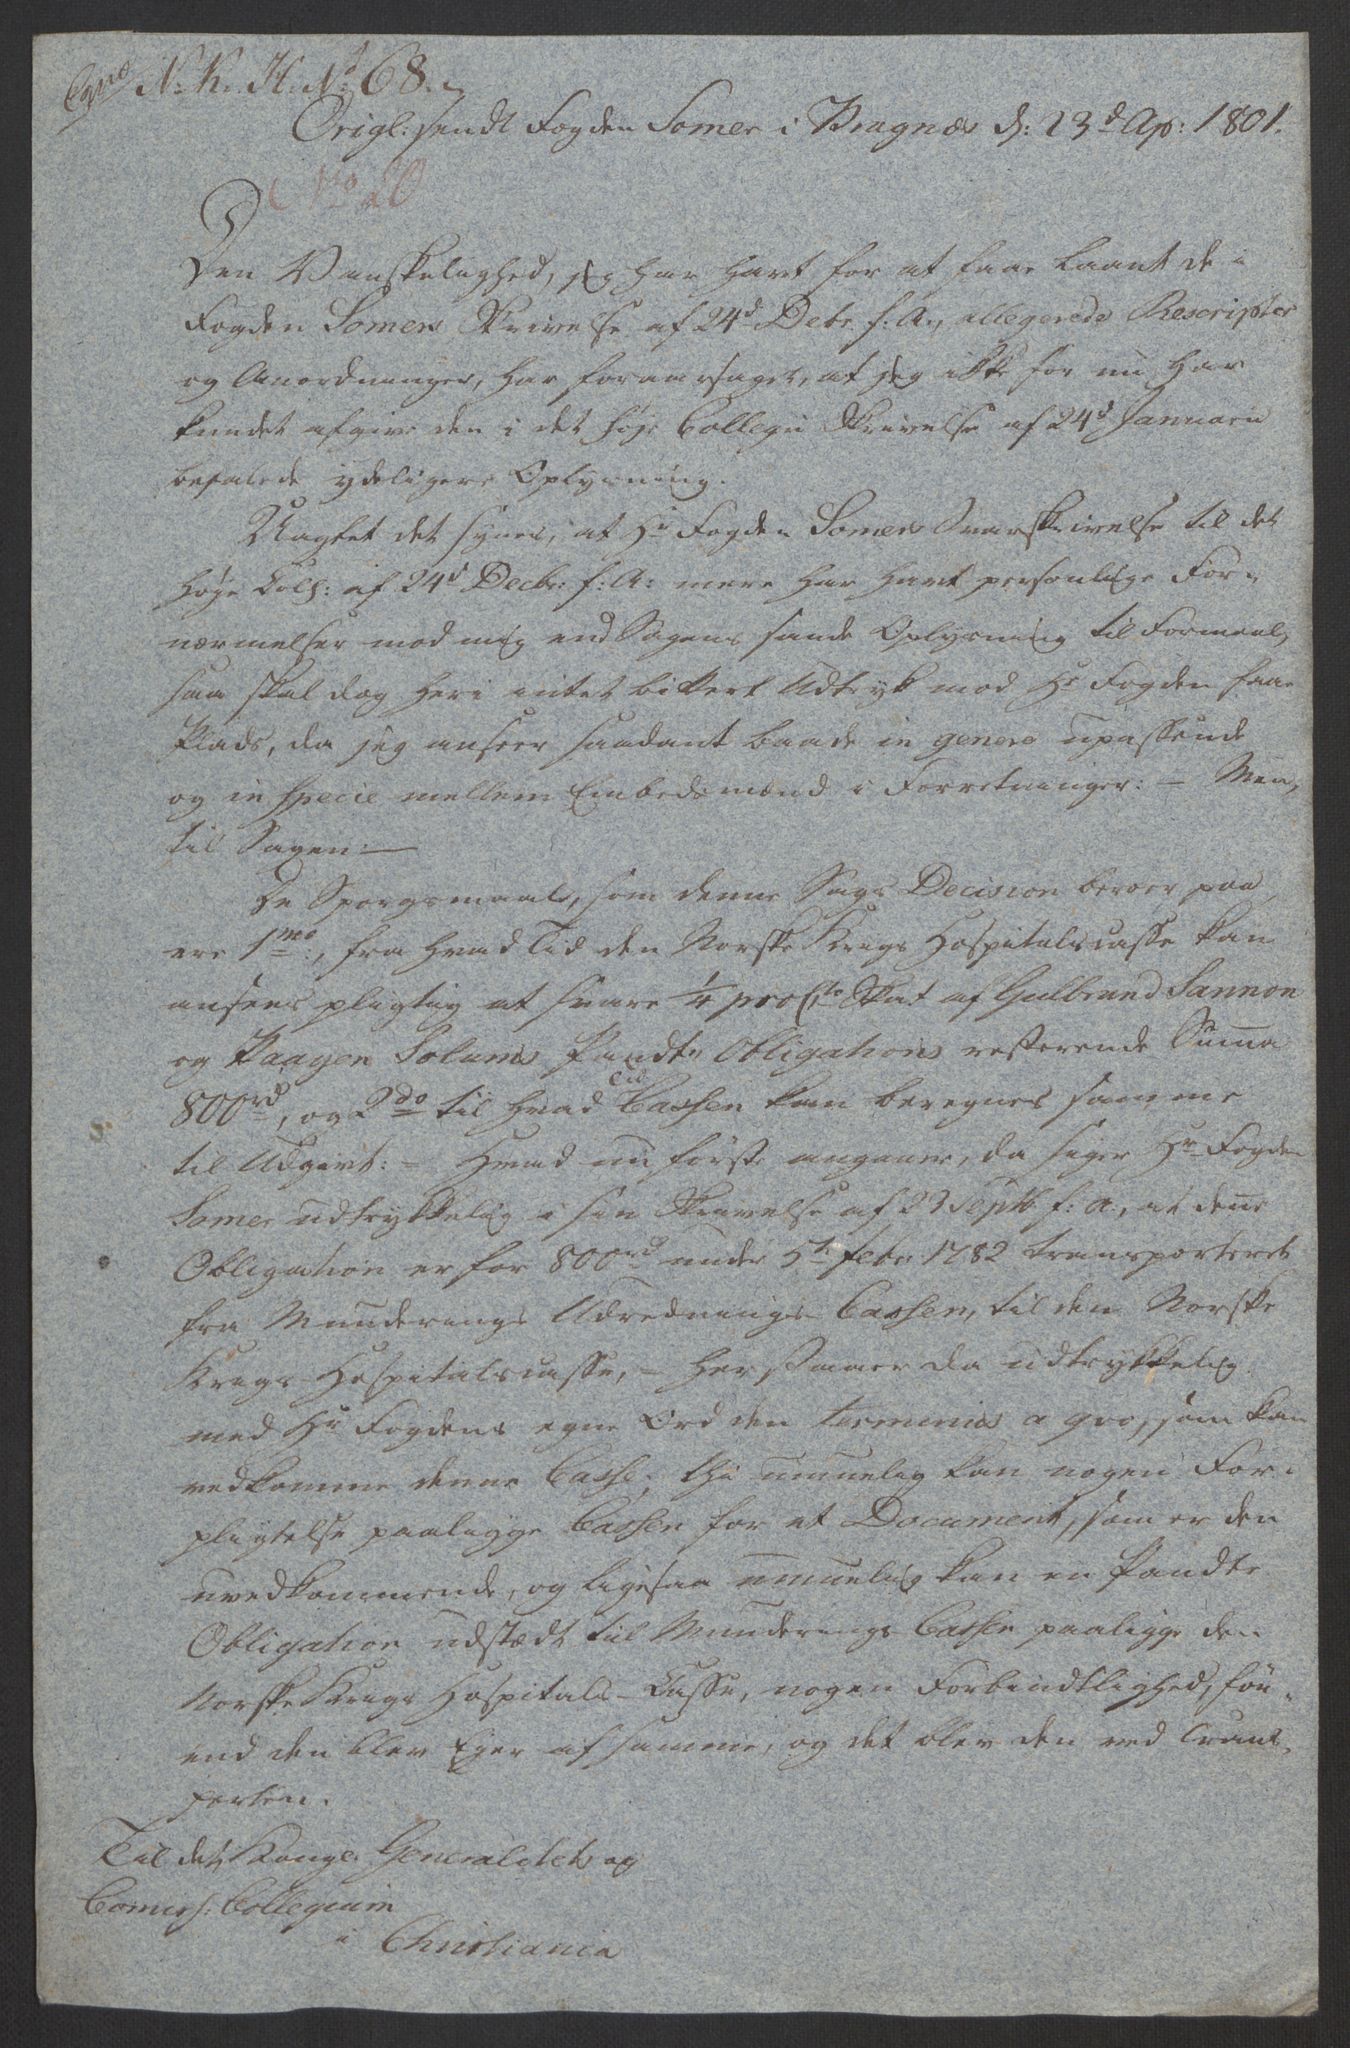 Copie N. K. H. No 68.
Origl: sendt Fogden Somer i Bragnæs d: 23d Ap: 1801.
No 20
Den Vanskelighed, jeg har havt for at faae laant de i
Fogden Somers Skrivelse af 24d Debr f: A:, allegerede Rescripter
og Anordninger, har foraarsaget, at jeg ikke før nu har
kundet afgive den i det høje Collegii Skrivelse af 24d Januarii
befalede ydeligere Oplysning.
Uagtet det synes, at Hr Fogden Somers Svarskrivelse til det
høje Coll: af 24d Decbr: f: A: mere har havt personlige For-
nærmelser mod mig end Sagens sande Oplysning til Formaal,
saa skal dog heri intet bittert Udtryk mod Hr Fogden faae
Plads, da jeg anseer saadant baade in genere upassende
og in specie mellem Embedsmænd i Forretninger: — Men,
til Sagen: —
De Spørgsmaale, som denne Sags Decision beroer paa,
ere 1mo:, fra hvad Tid den Norske Krigs Hospitalscasse kan
ansees pligtig at svare 1/4 pro Cto Skat af Gulbrand Sannon
og Haagen Solums Pandte Obligations resterende Summa
800rd, og 2do til hvad Tid Cassen kan beregnes samme
til Udgivt: — Hvad nu første angaaer, da siger Hr Fogden
Somer udtrykkelig i sin Skrivelse af 23 Septb f: A:, at denne
Obligation er for 800rd under 5te Febr: 1782 transporteret
fra Munderings Udrednings Cassen, til den Norske
Krigs Hospitalscasse, — her staaer da udtrykkelig
med Hr Fogdens egne Ord den terminus a qvo, som kan
vedkomme denne Casse; thi umuelig kan nogen For-
pligtelse paaligge Cassen for et Document, som er den
uvedkommende, og ligesaa umuelig kan en Pandte
Obligation udstædt til Munderings Cassen paaligge den
Norske Krigs Hospitals-Casse, nogen Forbindtlighed, før
end den blev Ejer af samme, og det blev den ved Trans-
porten.
Til det Kongl. Generalitets og
Comiss: Collegium
i Christiania